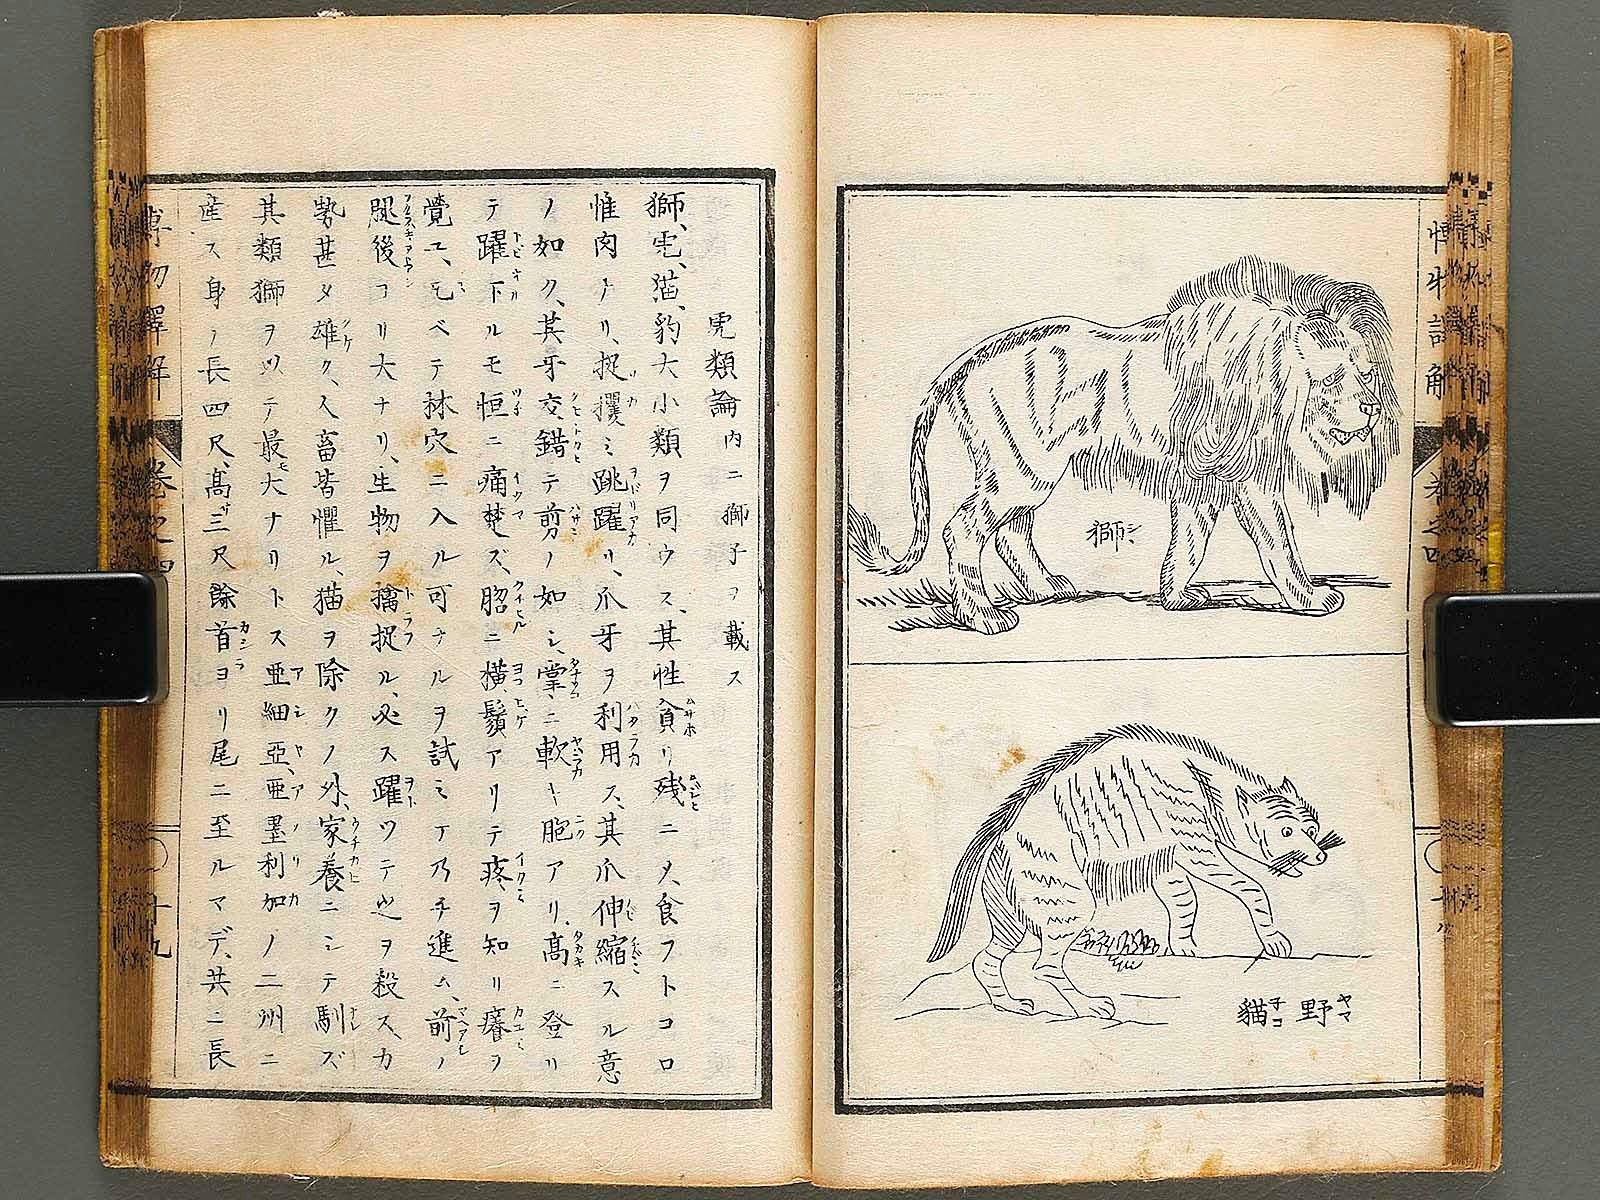 獅シシ
野ヤマ貓子コ
虎類論内ニ獅子ヲ載ス
獅、虎、猫、豹大小類ヲ同ウス、其性貪リ残ニメ、食フトコロ
惟肉ナリ、捉攫ミ跳躍リ、爪牙ヲ利用ス、其爪伸縮スル意
ノ如ク、其牙交錯テ剪ノ如シ、掌ニ軟キ胞アリ、高ニ登リ
テ躍下ルモ恒ニ痛楚ズ、脗ニ横鬚アリテ疼ヲ知リ癢ヲ
覺ユ、凡ベテ林穴ニ入ル可ナルヲ試ミテ乃チ進ム、前ノ
腿後ヨリ大ナリ、生物ヲ擒捉ル、必ス躍ツテ之ヲ殺ス、力
勢甚タ雄ク、人畜皆懼ル、猫ヲ除クノ外、家養ニシテ馴ズ
其類獅ヲ以テ最大ナリトス亜細亞、亜墨利加ノ二州ニ
産ス身ノ長四尺、高三尺餘首ヨリ尾ニ至ルマデ、共ニ長